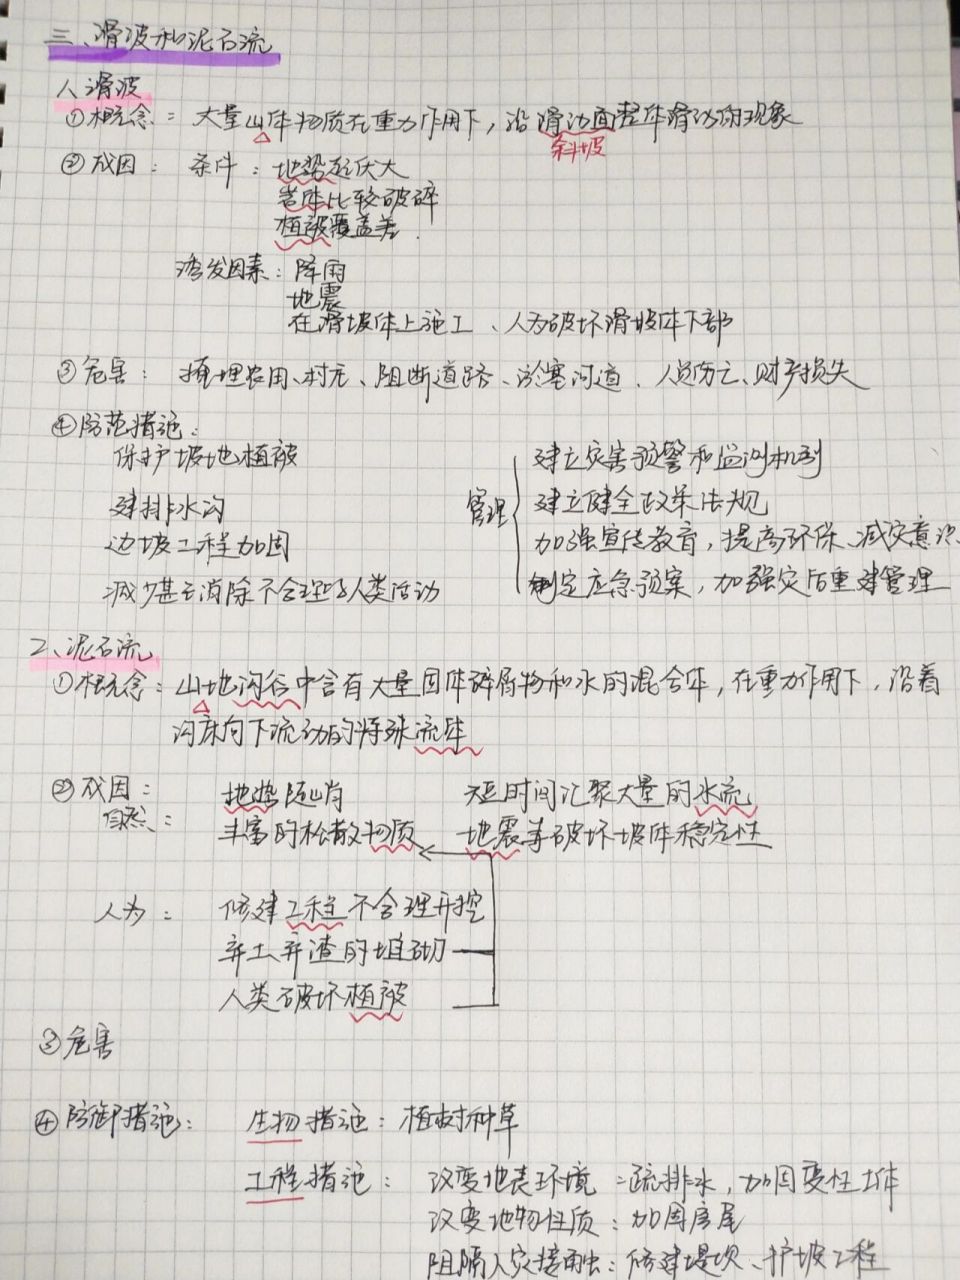 三、滑波和泥石流
1、滑波
①概念：大量山体物质在重力作用下，沿滑动面整体滑动的现象
斜坡
②成因：条件：地势起伏大
岩体比较破碎
植被覆盖差.
诱发因素：降雨
地震
在滑坡体上施工、人为破坏滑坡体下部
③危害：掩埋农田、村元、阻断道路、淤塞河道、人员伤亡、财产损失
④防范措施：
保护坡地植被
建排水沟
边坡工程加固
减少甚至消除不合理的人类活动
管理
建立灾害预警和监测机制
建立健全政策法规
加强宣传教育，提高环保、减灾意识
制定应急预案，加强灾后重建管理
2、泥石流
①概念：山地沟谷中含有大量固体碎屑物和水的混合体，在重力作用下，沿着
沟床向下流动的特殊流体
②成因：地势陡峭 短时间汇聚大量的水流
自然：丰富的松散物质 地震等破坏坡体稳定性
人为：修建工程不合理开挖
弃土弃渣的堆砌
人类破坏植被
③危害
④防御措施：生物措施：植树种草
工程措施：改变地表环境：疏排水，加固变性土体
改变地物性质：加固房屋
阻隔人灾接触：修建堤坝、护坡工程